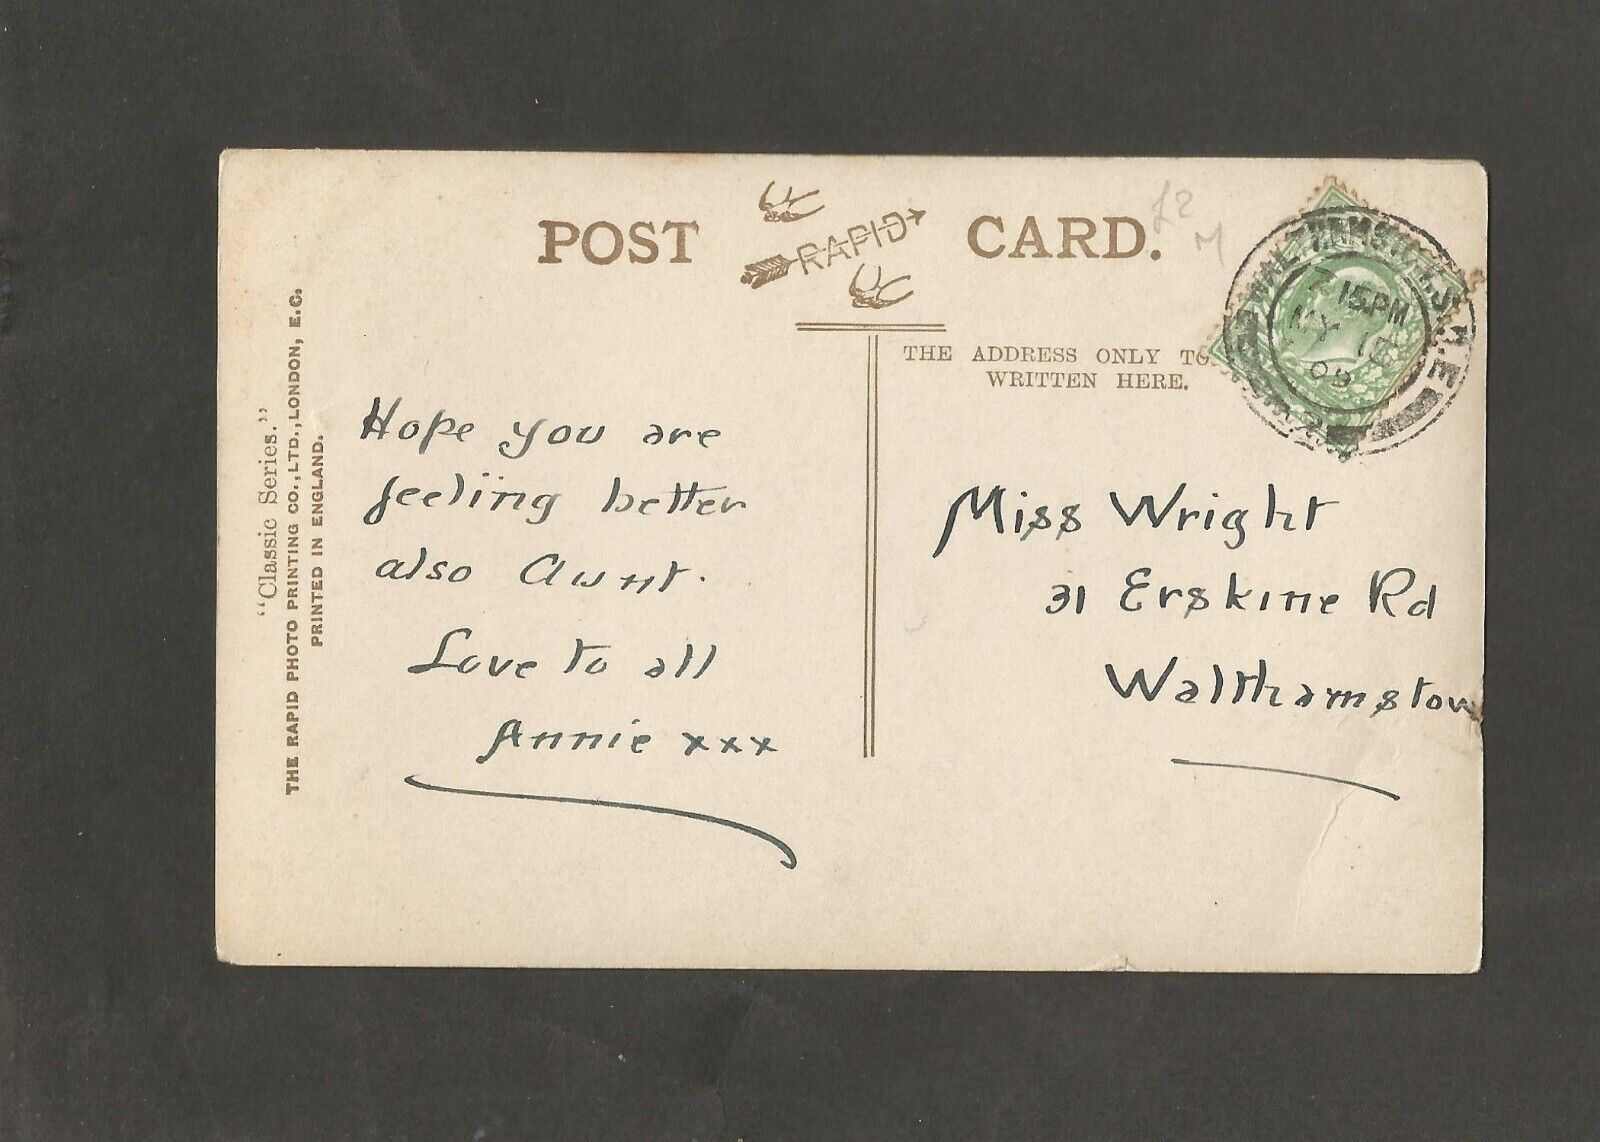 POST RAPID CARD.
£2
M
WALTHAMSTOW S.O.E
7.15PM
MY 15
09
THE ADDRESS ONLY TO
WRITTEN HERE.
"Classic Series."
THE RAPID PHOTO PRINTING CO., LTD., LONDON, E.C.
PRINTED IN ENGLAND.
Hope you are
feeling better
also Aunt.
Love to all
Annie xxx
Miss Wright
31 Erskine Rd
Walthamstow